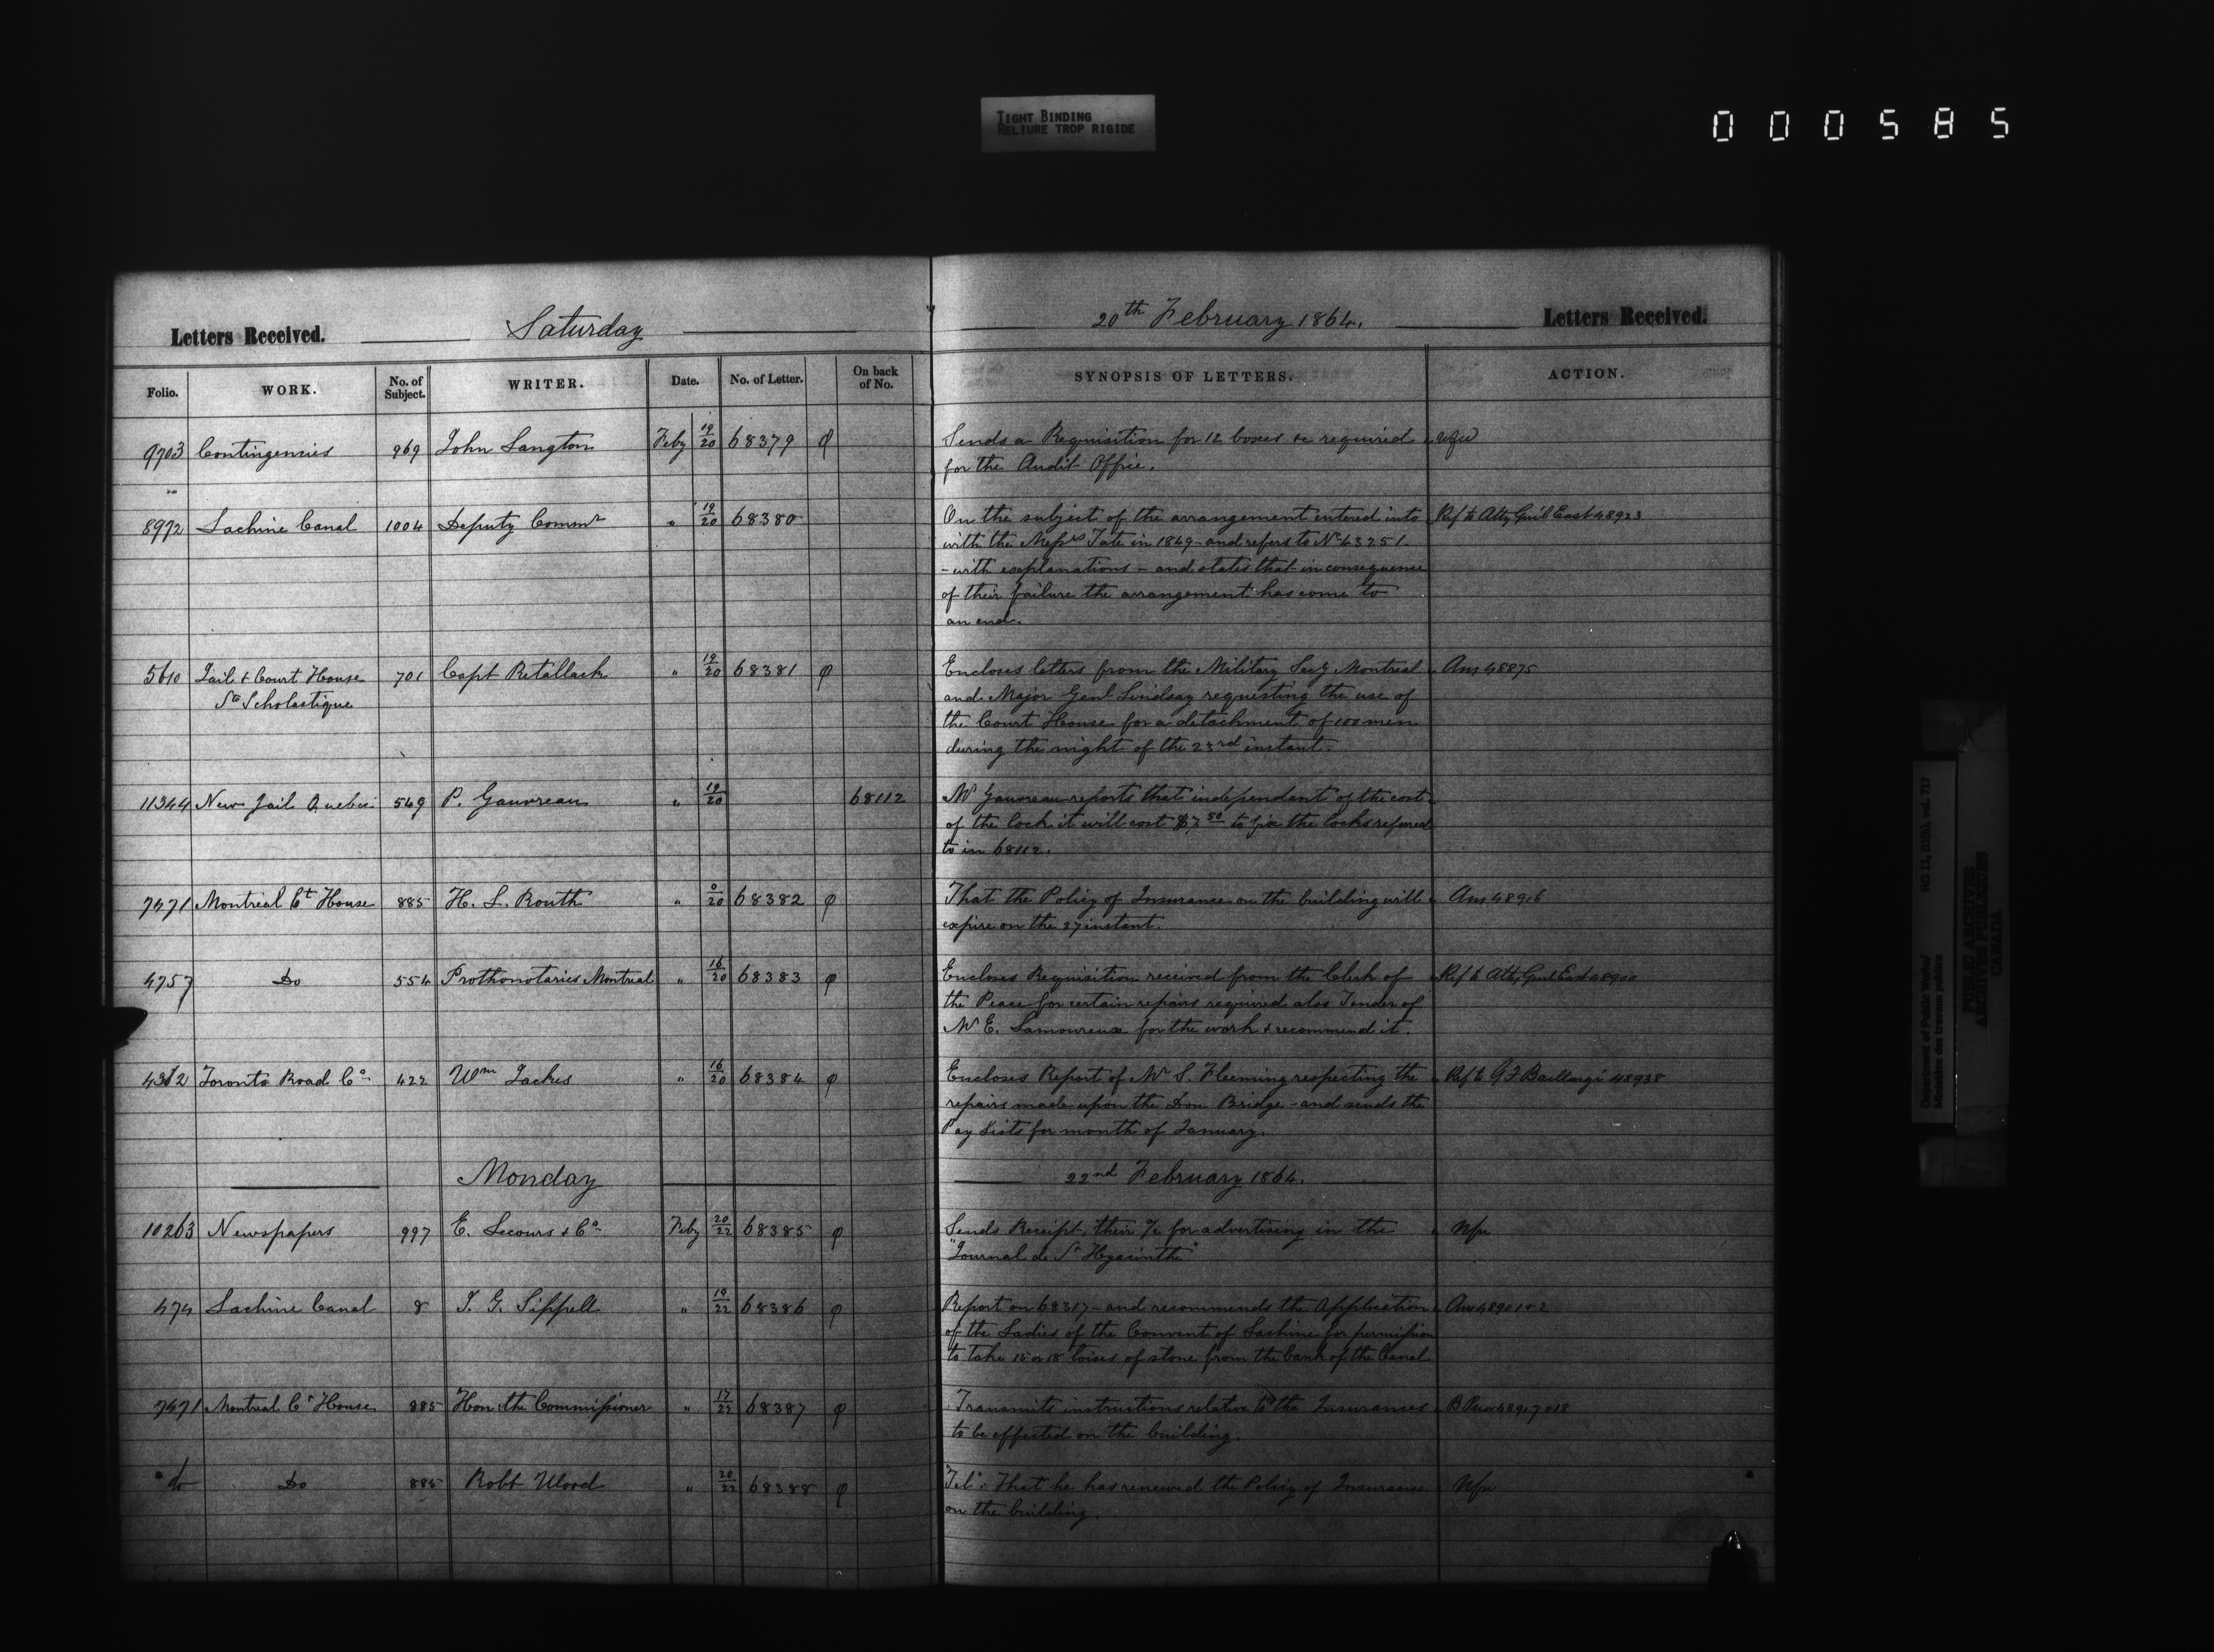 TIGHT BINDING
RELIURE TROP RIGIDE
000585
Letters Received. Saturday 20th February 1864. Letters Received.
Folio. WORK. No. of Subject. WRITER. Date. No. of Letter. On back of No. SYNOPSIS OF LETTERS. ACTION.
9703 Contingencies 969 John Langton Feby 19/20 68379 φ Sends a Requisition for 12 boxes &c required
for the Audit Office.
8972 Lachine Canal 1004 Deputy Commr " 19/20 68380 On the subject of the arrangement entered into Ref to Atty Genl East 48923
with the Messrs Tate in 1849 - and refers to No 43251
- with explanations - and states that in consequence
of their failure the arrangement has come to
an end.
5610 Jail & Court House 701 Capt Retallack " 19/20 68381 φ Encloses letters from the Military Secy Montreal Ans 48875
Ste Scholastique and Major Genl Lindsay requesting the use of
the Court House for a detachment of 100 men
during the night of the 23rd instant.
11344 New Jail Quebec 549 P. Gauvreau " 19/20 68112 Mr Gauvreau reports that independant of the cost
of the lock it will cost $7.50 to fix the locks refered
to in 68112.
7471 Montreal Ct House 885 H. L. Routh " 20 68382 φ That the Policy of Insurance on the building will Ans 48916
expire on the 27 instant.
4757 Do 554 Prothonotaries Montreal " 16/20 68383 φ Encloses Requisition received from the Clerk of Ref to Atty Genl East
the Peace for certain repairs required also Tender of
Mr E. Lamoureux for the work & recommend it.
4312 Toronto Road Co 422 Wm Jackes " 16/20 68384 φ Encloses Report of Mr S. Fleming respecting the Ref to G F Baillargé 48938
repairs made upon the Don Bridge - and sends the
Pay Lists for month of January.
Monday 22nd February 1864.
10263 Newspapers 997 E. Lecours & Co Feby 20/22 68385 φ Sends Receipt, their a/c for advertising in the Nfn
"Journal de St Hyacinthe"
474 Lachine Canal 8 J. G. Sippell " 19/22 68386 φ Report on 68317 - and recommends the Application Ans 48901 & 2
of the Ladies of the Convent of Lachine for permission
to take 15 or 18 toises of stone from the bank of the Canal
7471 Montreal Ct House 885 Hon. the Commissioner " 17/22 68387 φ Transmits instructions relative to the Insurances
to be effected on the building.
do Do 885 Robt Wood " 20/22 68388 φ Tel: That he has renewed the Policy of Insurance Nfn
on the building.
Department of Public Works/ RG 11, B1(b), vol. 717
Ministère des travaux publics
PUBLIC ARCHIVES
ARCHIVES PUBLIQUES
CANADA